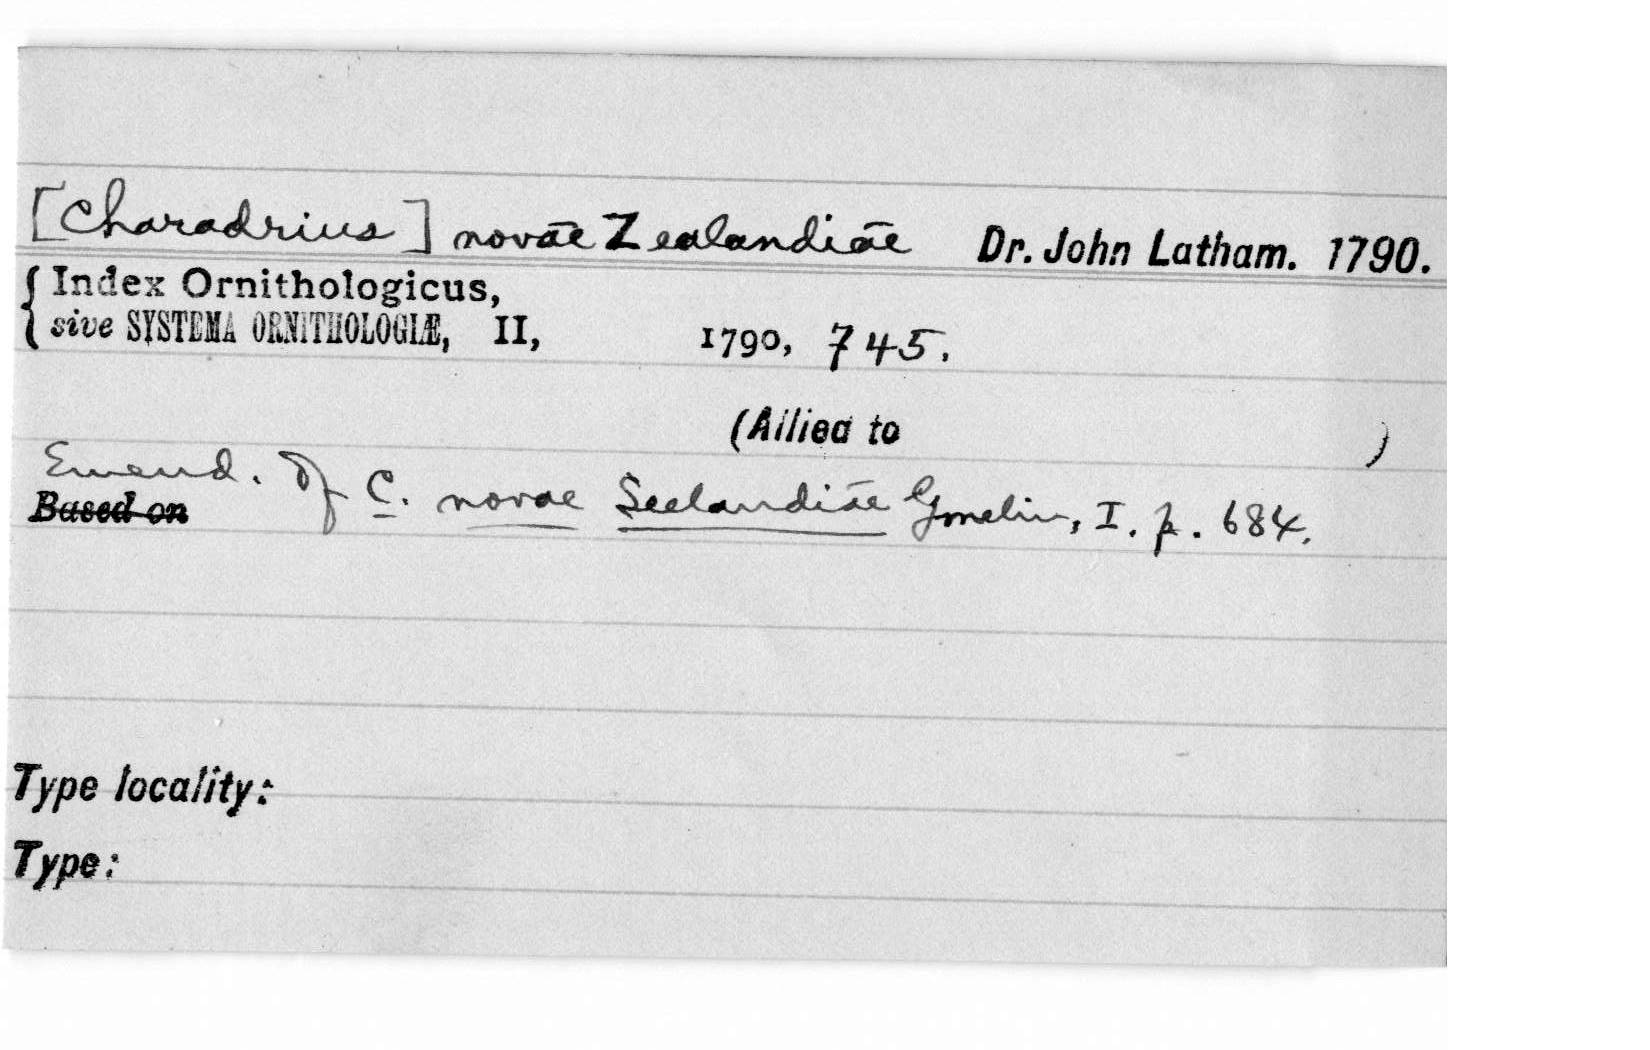 [Charadrius] novae Zealandiae Dr. John Latham. 1790.
Index Ornithologicus,
sive SYSTEMA ORNITHOLOGIÆ, II, 1790, 745.
(Allied to )
Emend. of C. novae Seelandiae Gmelin, I. p. 684.
Based on
Type locality:
Type: